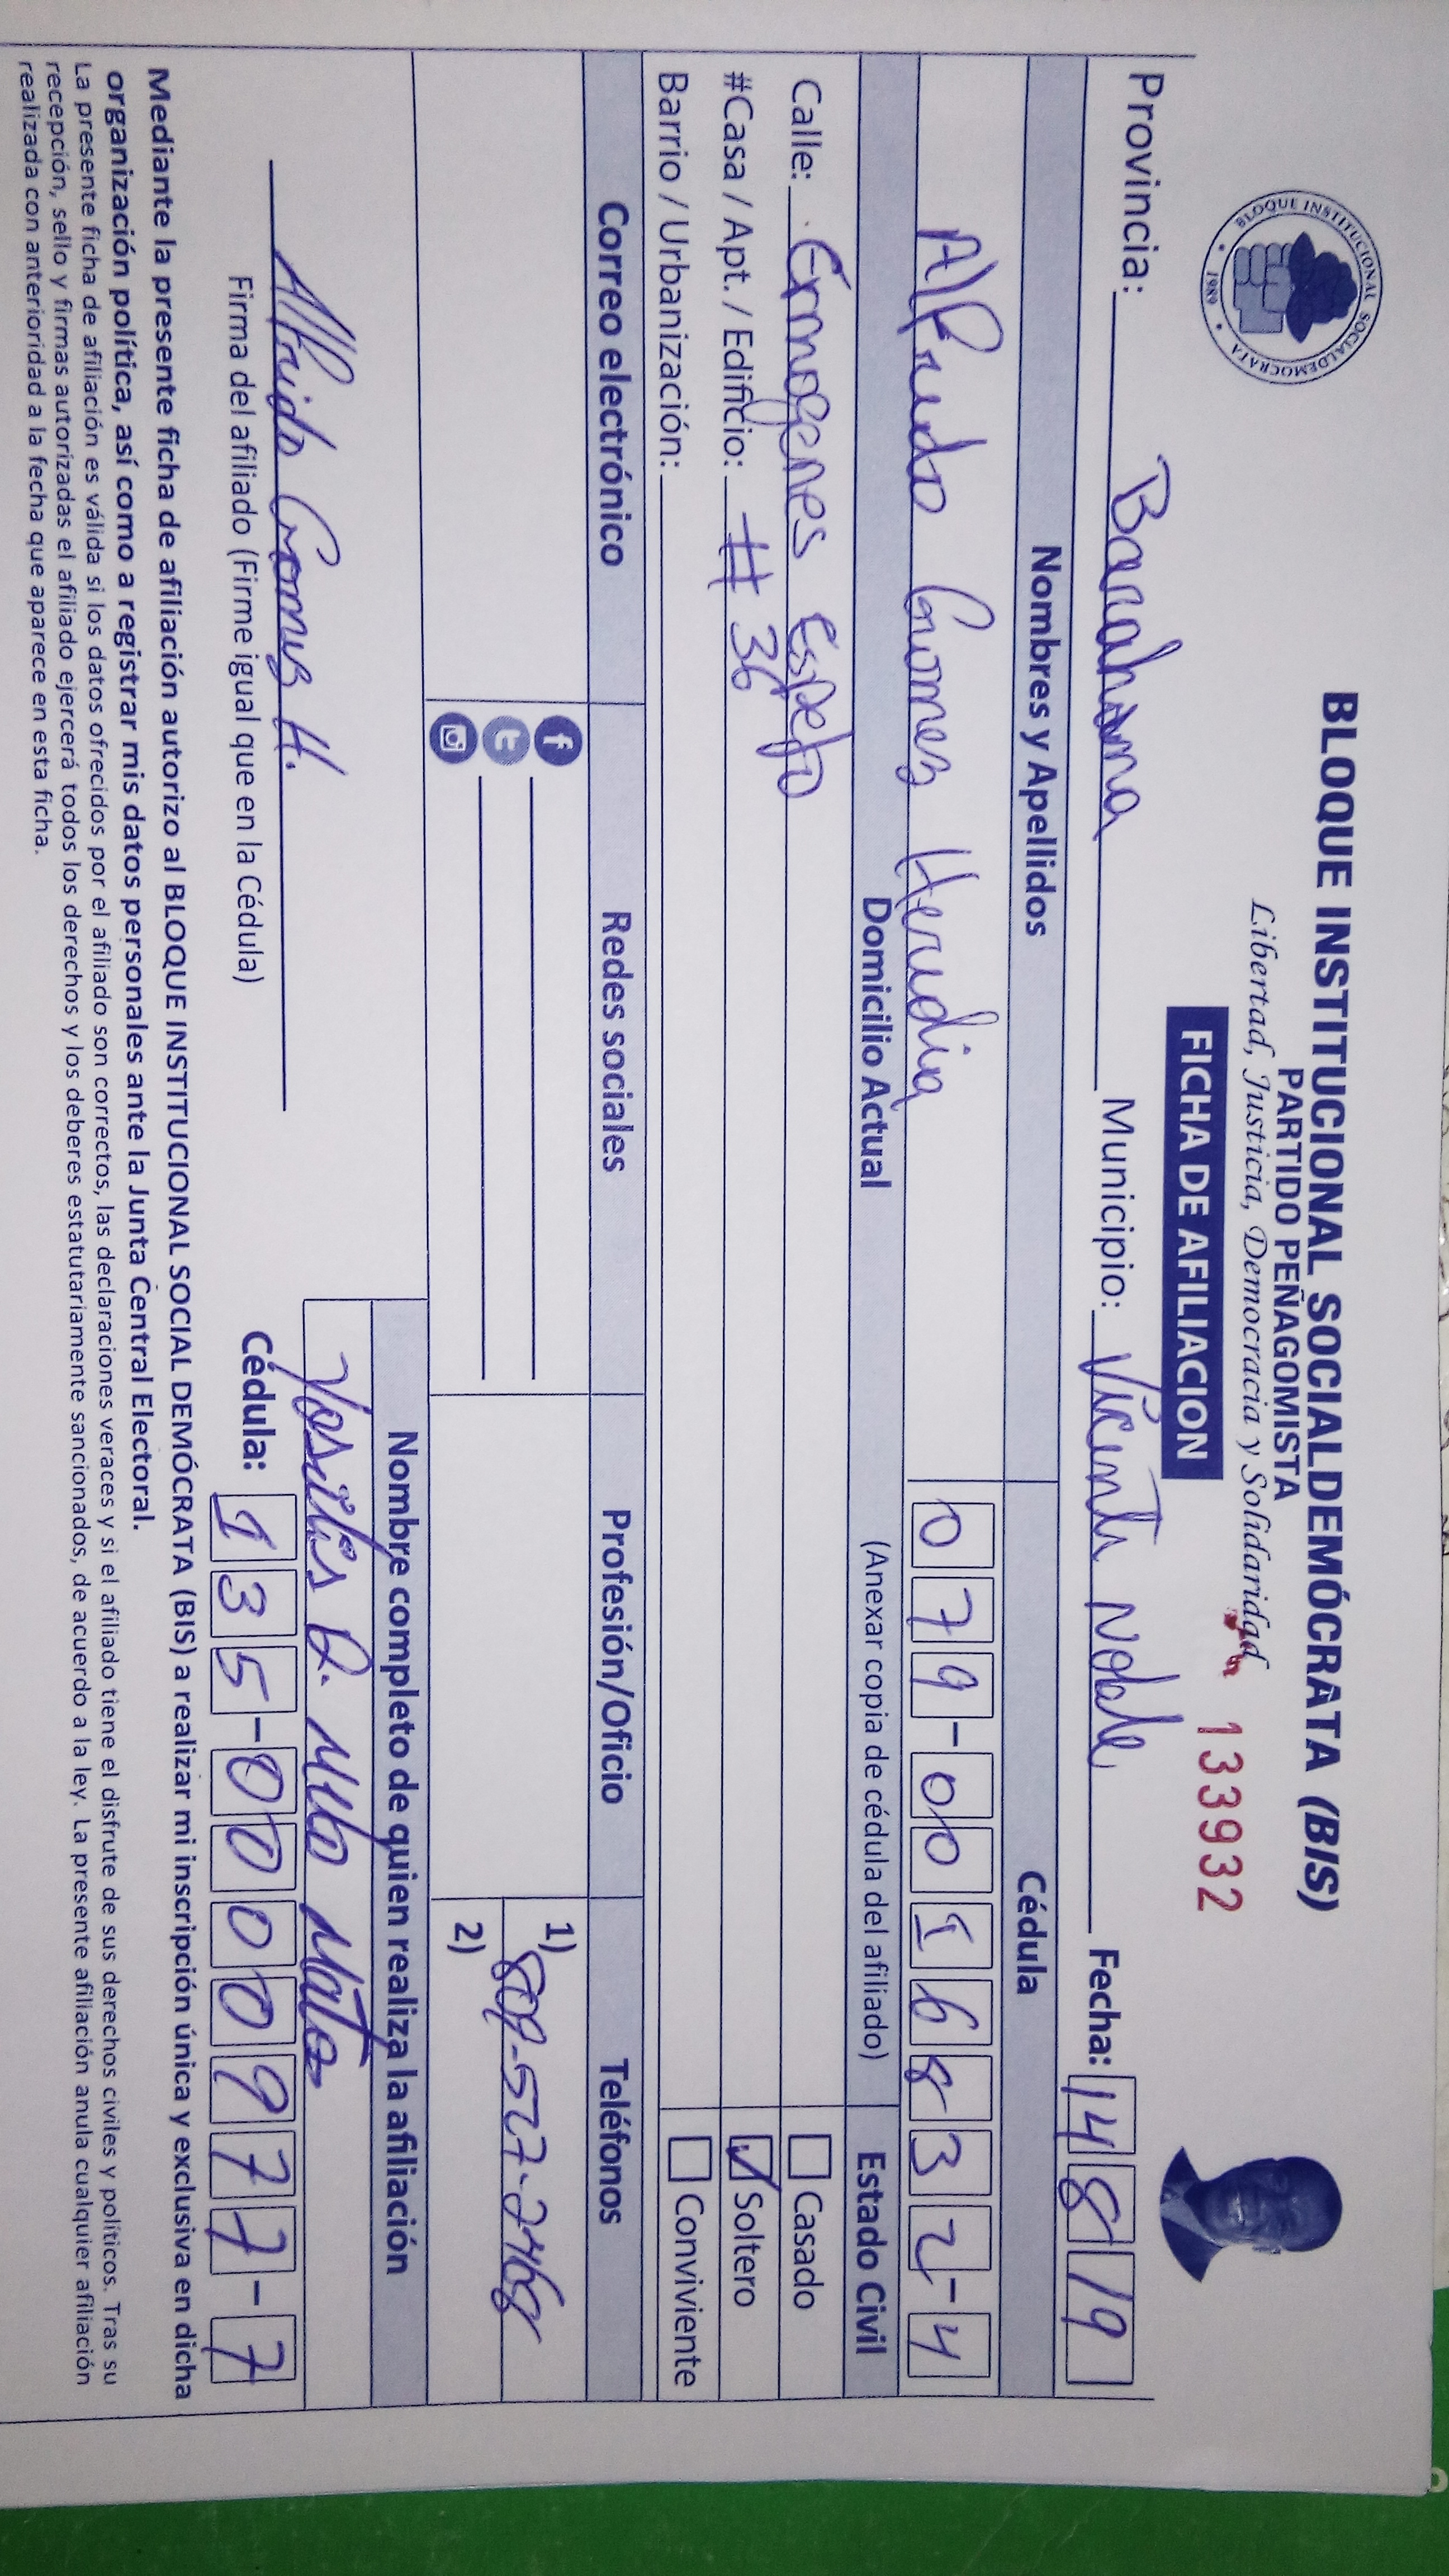 BLOQUE INSTITUCIONAL SOCIALDEMOCRATA
1989
BLOQUE INSTITUCIONAL SOCIALDEMÓCRATA (BIS)
PARTIDO PEÑAGOMISTA
Libertad, Justicia, Democracia y Solidaridad
FICHA DE AFILIACION
133932
Provincia: Barahona Municipio: Vicente Noble Fecha: 14 8 19
Nombres y Apellidos Cédula
Alfredo Gomes Heredia 079-0016832-4
Domicilio Actual (Anexar copia de cédula del afiliado) Estado Civil
Calle: Ermogenes Espejo Casado
#Casa / Apt. / Edificio: # 36 Soltero
Barrio / Urbanización: Conviviente
Correo electrónico Redes sociales Profesión/Oficio Teléfonos
1) 809-527-2468
2)
Nombre completo de quien realiza la afiliación
Yosilis D. Melo Mato
Alfredo Gomes H.
Firma del afiliado (Firme igual que en la Cédula)
Cédula: 135-0000977-7
Mediante la presente ficha de afiliación autorizo al BLOQUE INSTITUCIONAL SOCIAL DEMÓCRATA (BIS) a realizar mi inscripción única y exclusiva en dicha
organización política, así como a registrar mis datos personales ante la Junta Central Electoral.
La presente ficha de afiliación es válida si los datos ofrecidos por el afiliado son correctos, las declaraciones veraces y si el afiliado tiene el disfrute de sus derechos civiles y políticos. Tras su
recepción, sello y firmas autorizadas el afiliado ejercerá todos los derechos y los deberes estatutariamente sancionados, de acuerdo a la ley. La presente afiliación anula cualquier afiliación
realizada con anterioridad a la fecha que aparece en esta ficha.